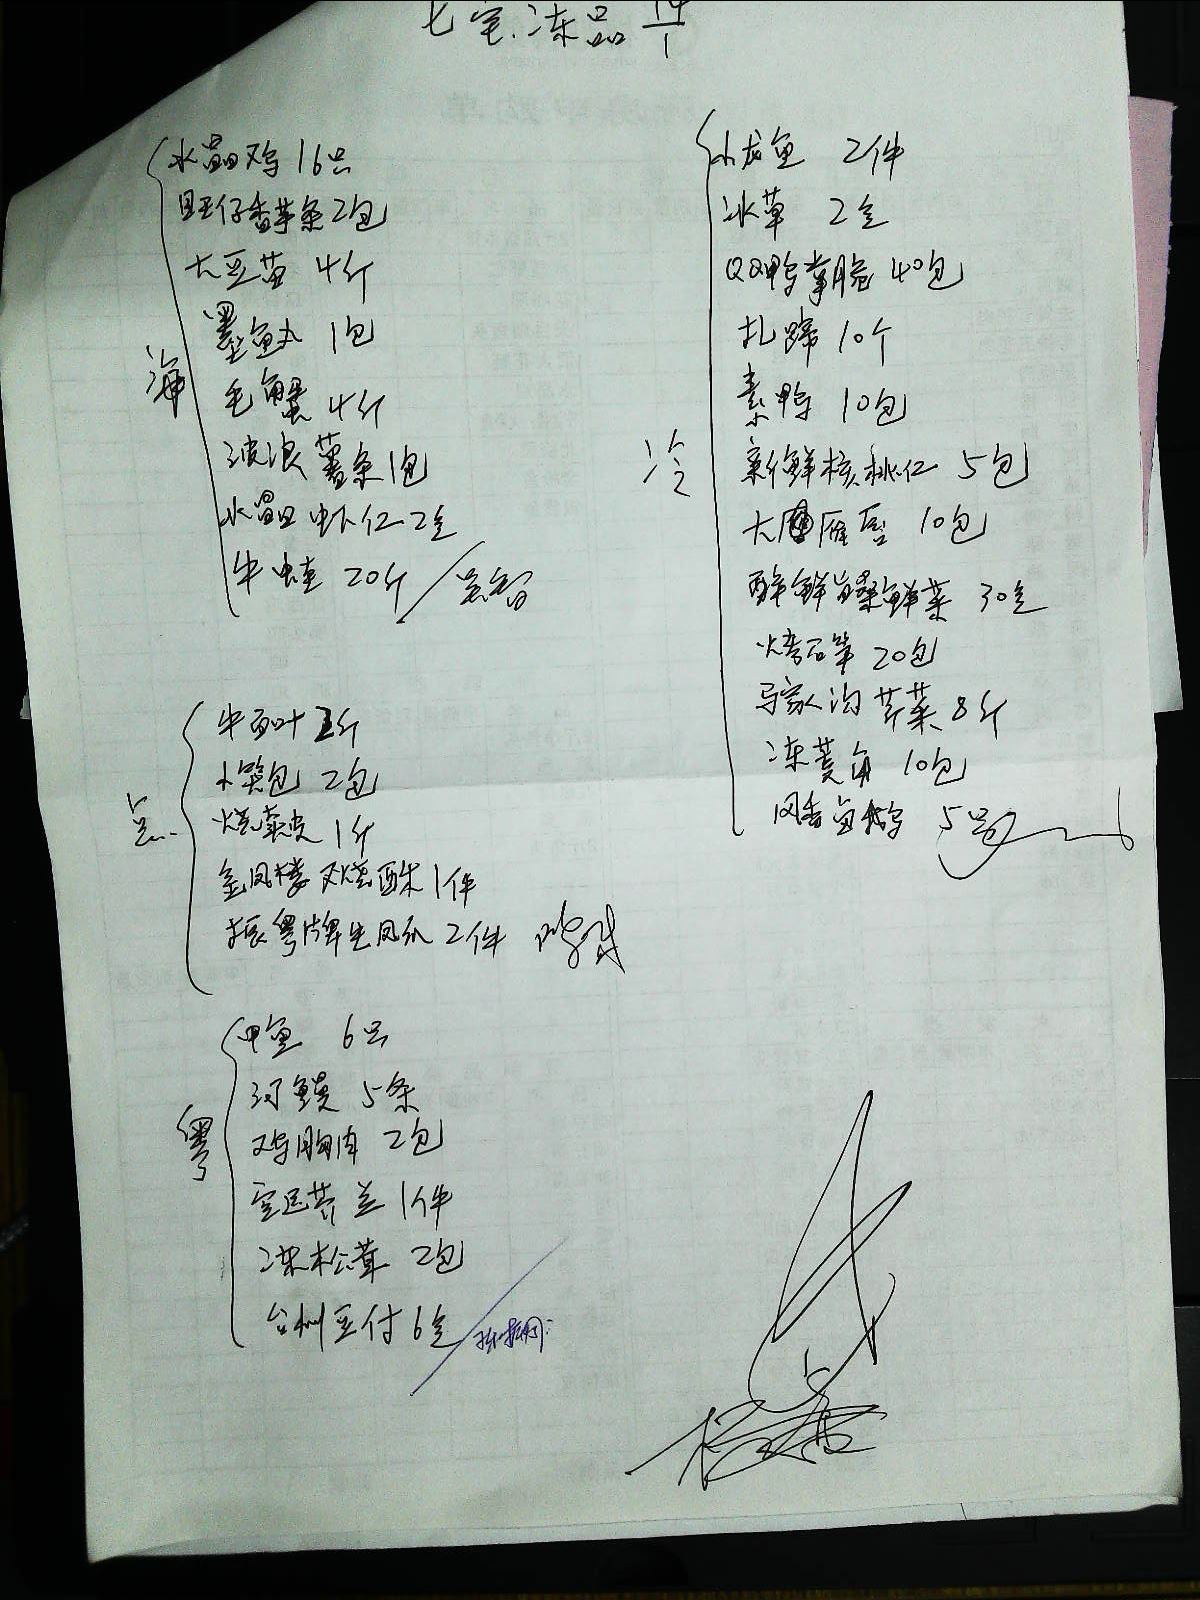 七宝冻品 14/1
海
水晶鸡 16只
旺仔香芋条 2包
大豆苗 4斤
墨鱼丸 1包
毛蟹 4斤
波浪薯条 1包
水晶虾仁 2包
牛蛙 20斤
点
牛百叶 2斤
小笼包 2包
烧卖皮 1斤
金凤楼叉烧酥 1件
振粤牌生凤爪 2件
粤
甲鱼 6只
河鳗 5条
鸡胸肉 2包
芥兰 1件
冻松茸 2包
台州豆付 6包
冷
小龙鱼 2件
冰草 2包
QQ鸭掌脆 40包
扎蹄 10个
素鸭 10包
新鲜核桃仁 5包
大雁 10包
鲜菜 30包
石笋 20包
马家沟芹菜 8斤
冻菱角 10包
风香 5只